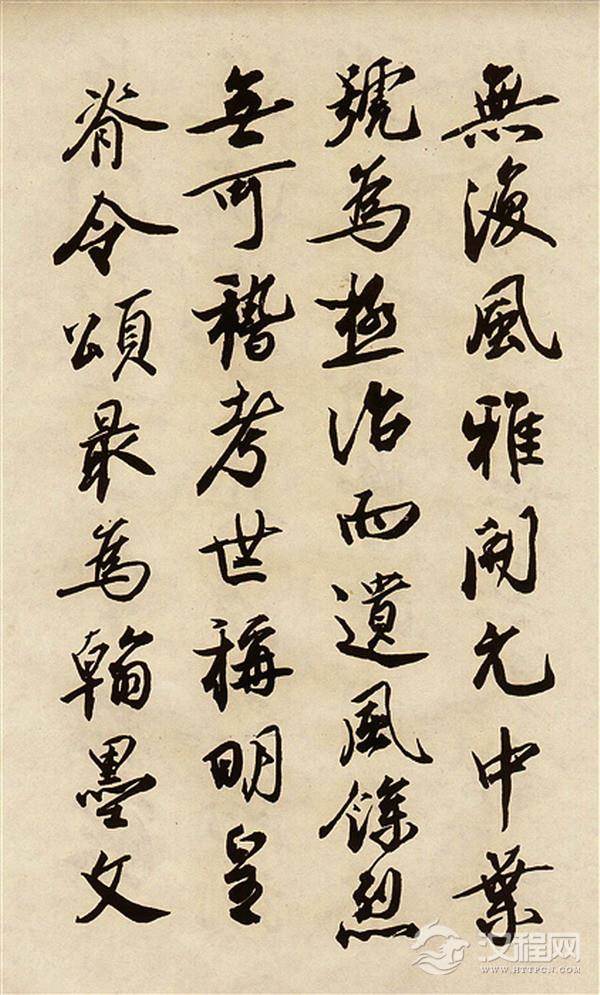 無復風雅開元中葉
號為極治而遺風餘烈
無可稽考世稱明皇
脊令頌最為翰墨文
汉程网
WWW.HTTPCN.COM